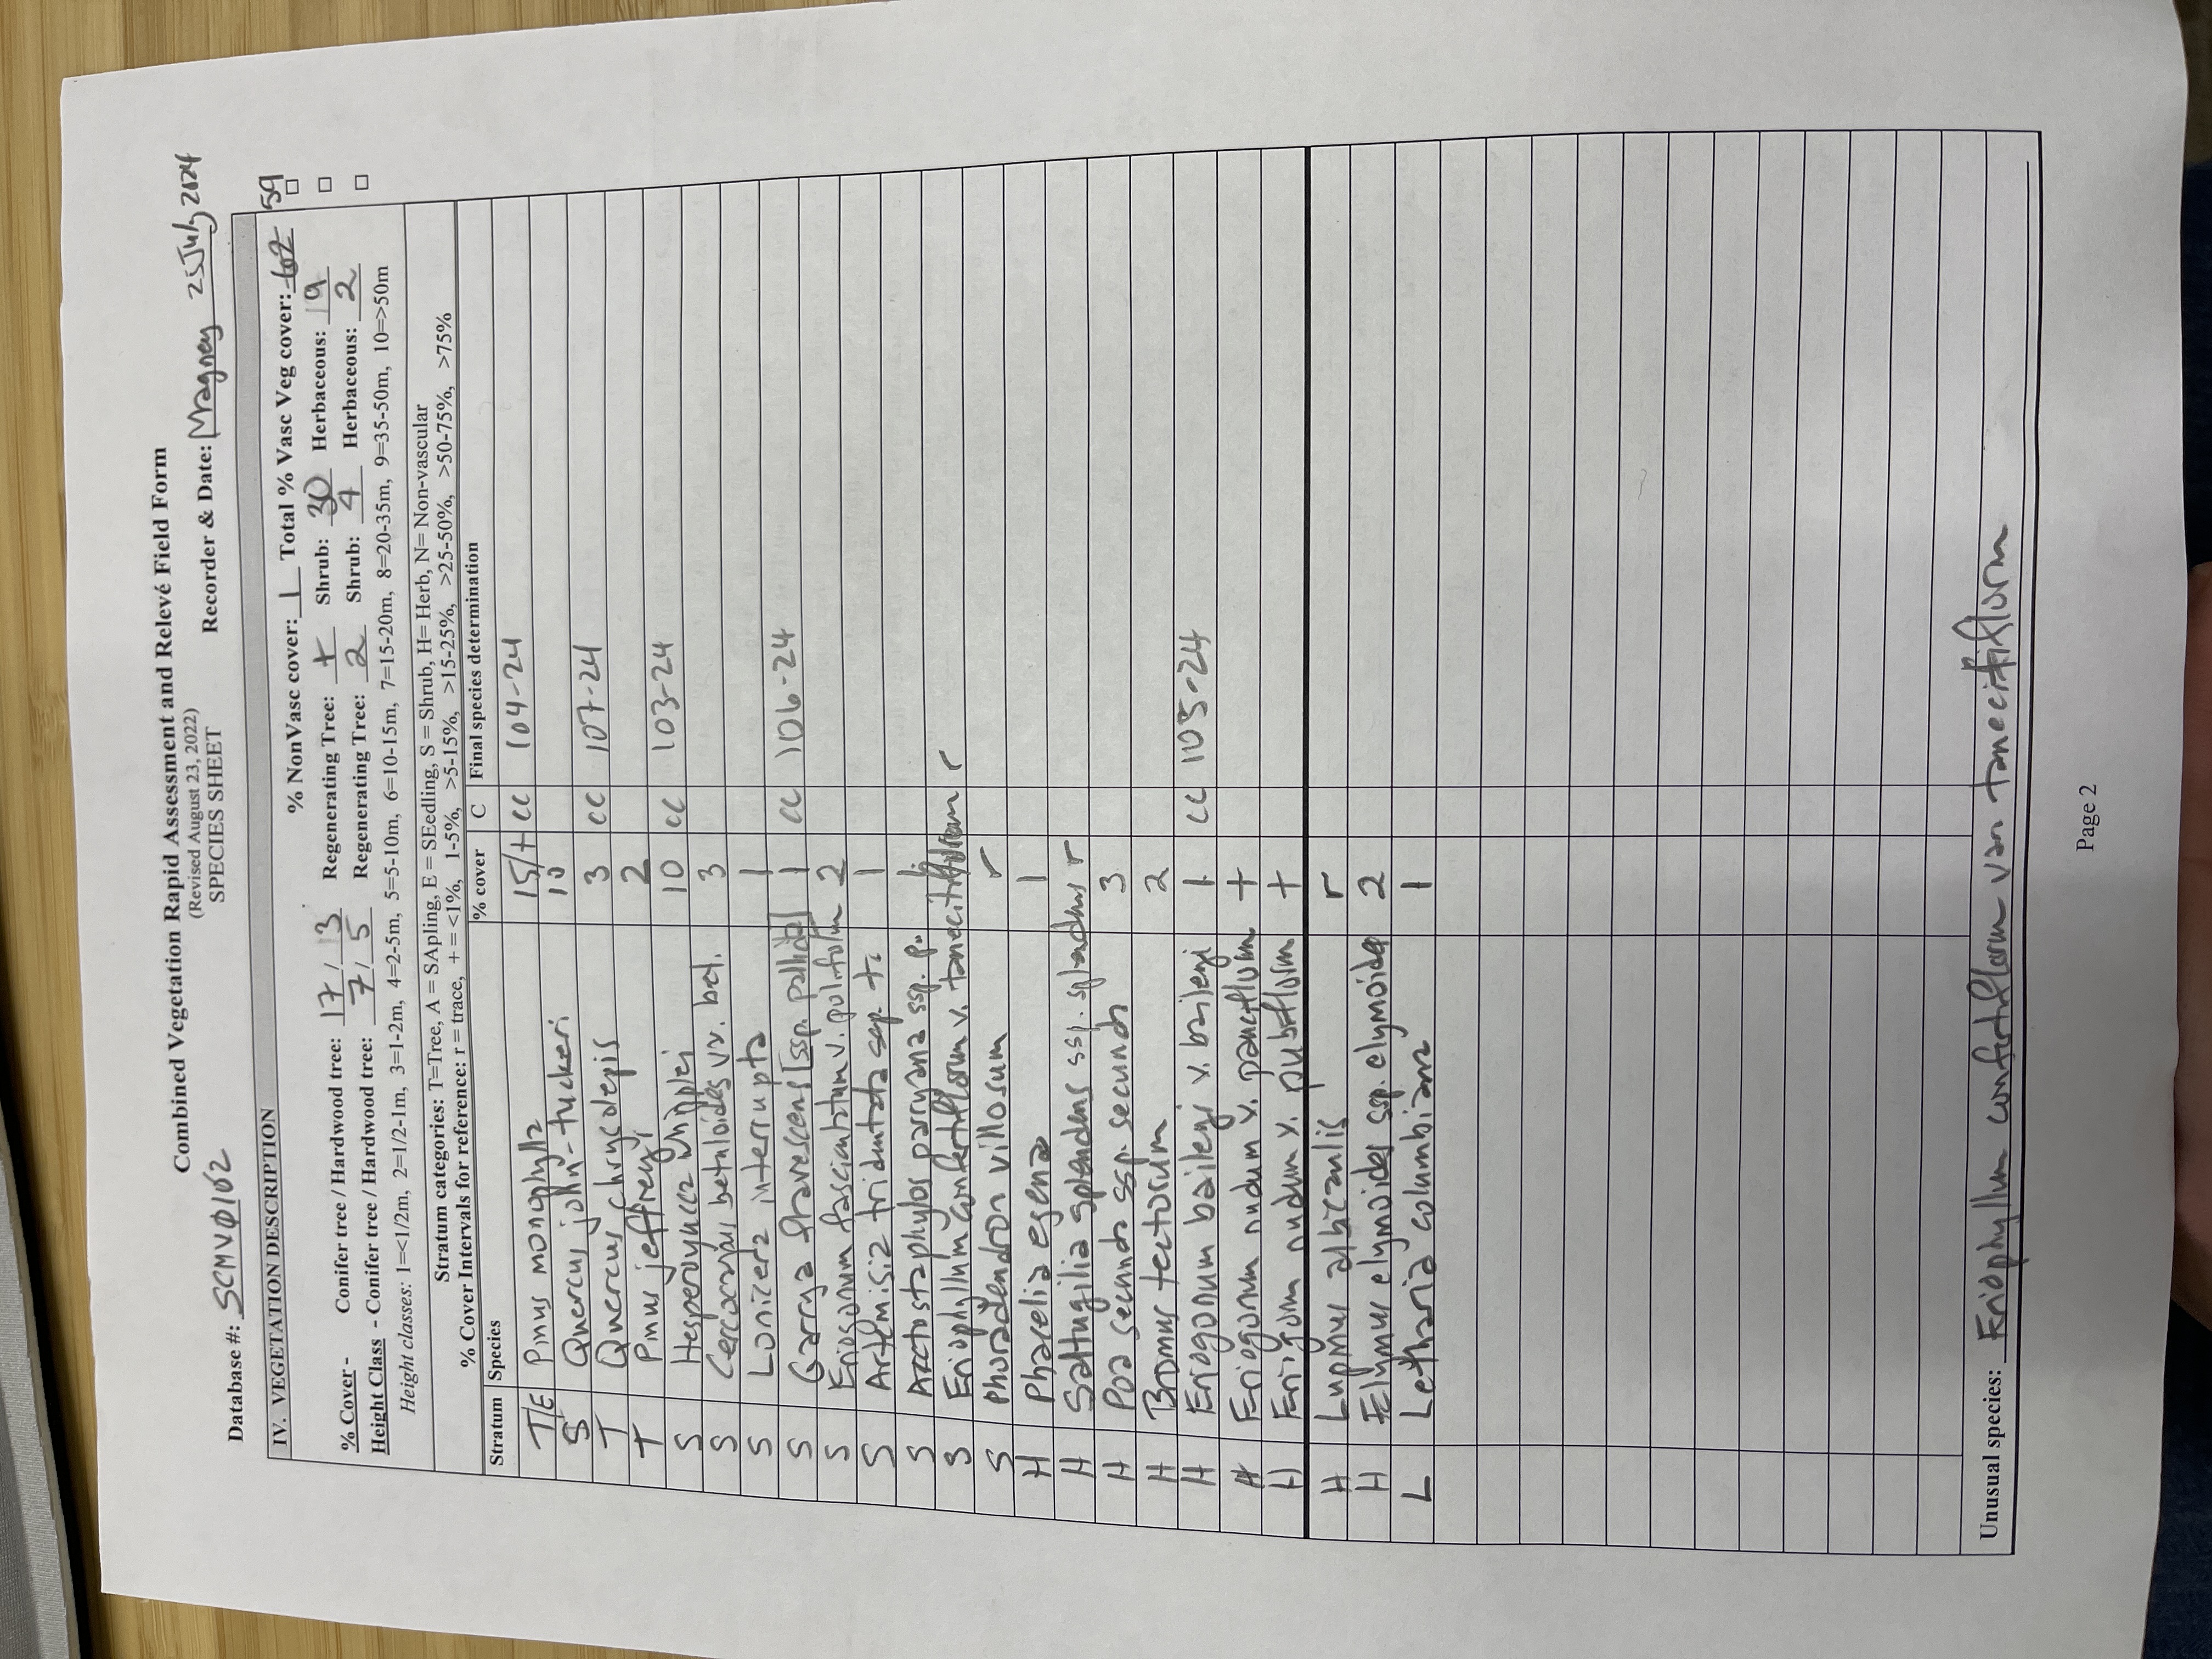 Combined Vegetation Rapid Assessment and Relevé Field Form
(Revised August 23, 2022)
SPECIES SHEET
Database #: SCMVØ162 Recorder & Date: Magney 25July2024
IV. VEGETATION DESCRIPTION
% NonVasc cover: 1 Total % Vasc Veg cover: 62 59
% Cover - Conifer tree / Hardwood tree: 17 / 3 Regenerating Tree: + Shrub: 30 Herbaceous: 19
Height Class - Conifer tree / Hardwood tree: 7 / 5 Regenerating Tree: 2 Shrub: 4 Herbaceous: 2
Height classes: 1=<1/2m, 2=1/2-1m, 3=1-2m, 4=2-5m, 5=5-10m, 6=10-15m, 7=15-20m, 8=20-35m, 9=35-50m, 10=>50m
Stratum categories: T=Tree, A = SApling, E = SEedling, S = Shrub, H= Herb, N= Non-vascular
% Cover Intervals for reference: r = trace, + = <1%, 1-5%, >5-15%, >15-25%, >25-50%, >50-75%, >75%
Stratum Species % cover C Final species determination
T/E Pinus monophylla 15/+ cc 104-24
S Quercus john-tuckeri 10
T Quercus chrysolepis 3 cc 107-24
T Pinus jeffreyi 2
S Hesperoyucca whipplei 10 cc 103-24
S Cercocarpus betuloides var. bet. 3
S Lonicera interrupta 1
S Garrya flavescens [ssp. pallida] 1 cc 106-24
S Eriogonum fasciculatum v. polifolium 2
S Artemisia tridentata ssp. t. 1
S Arctostaphylos parryana ssp. p. 1
S Eriophyllum confertiflorum v. tanacetiflorum r
S Phoradendron villosum r
H Phacelia egena 1
H Saltugilia splendens ssp. splendens r
H Poa secunda ssp. secunda 3
H Bromus tectorum 2
H Eriogonum baileyi v. baileyi 1 cc 105-24
H Eriogonum nudum v. pauciflorum +
H Eriogonum nudum v. pubiflorum +
H Lupinus albicaulis r
H Elymus elymoides ssp. elymoides 2
L Letharia columbiana 1
Unusual species: Eriophyllum confertiflorum var. tanacetiflorum
Page 2